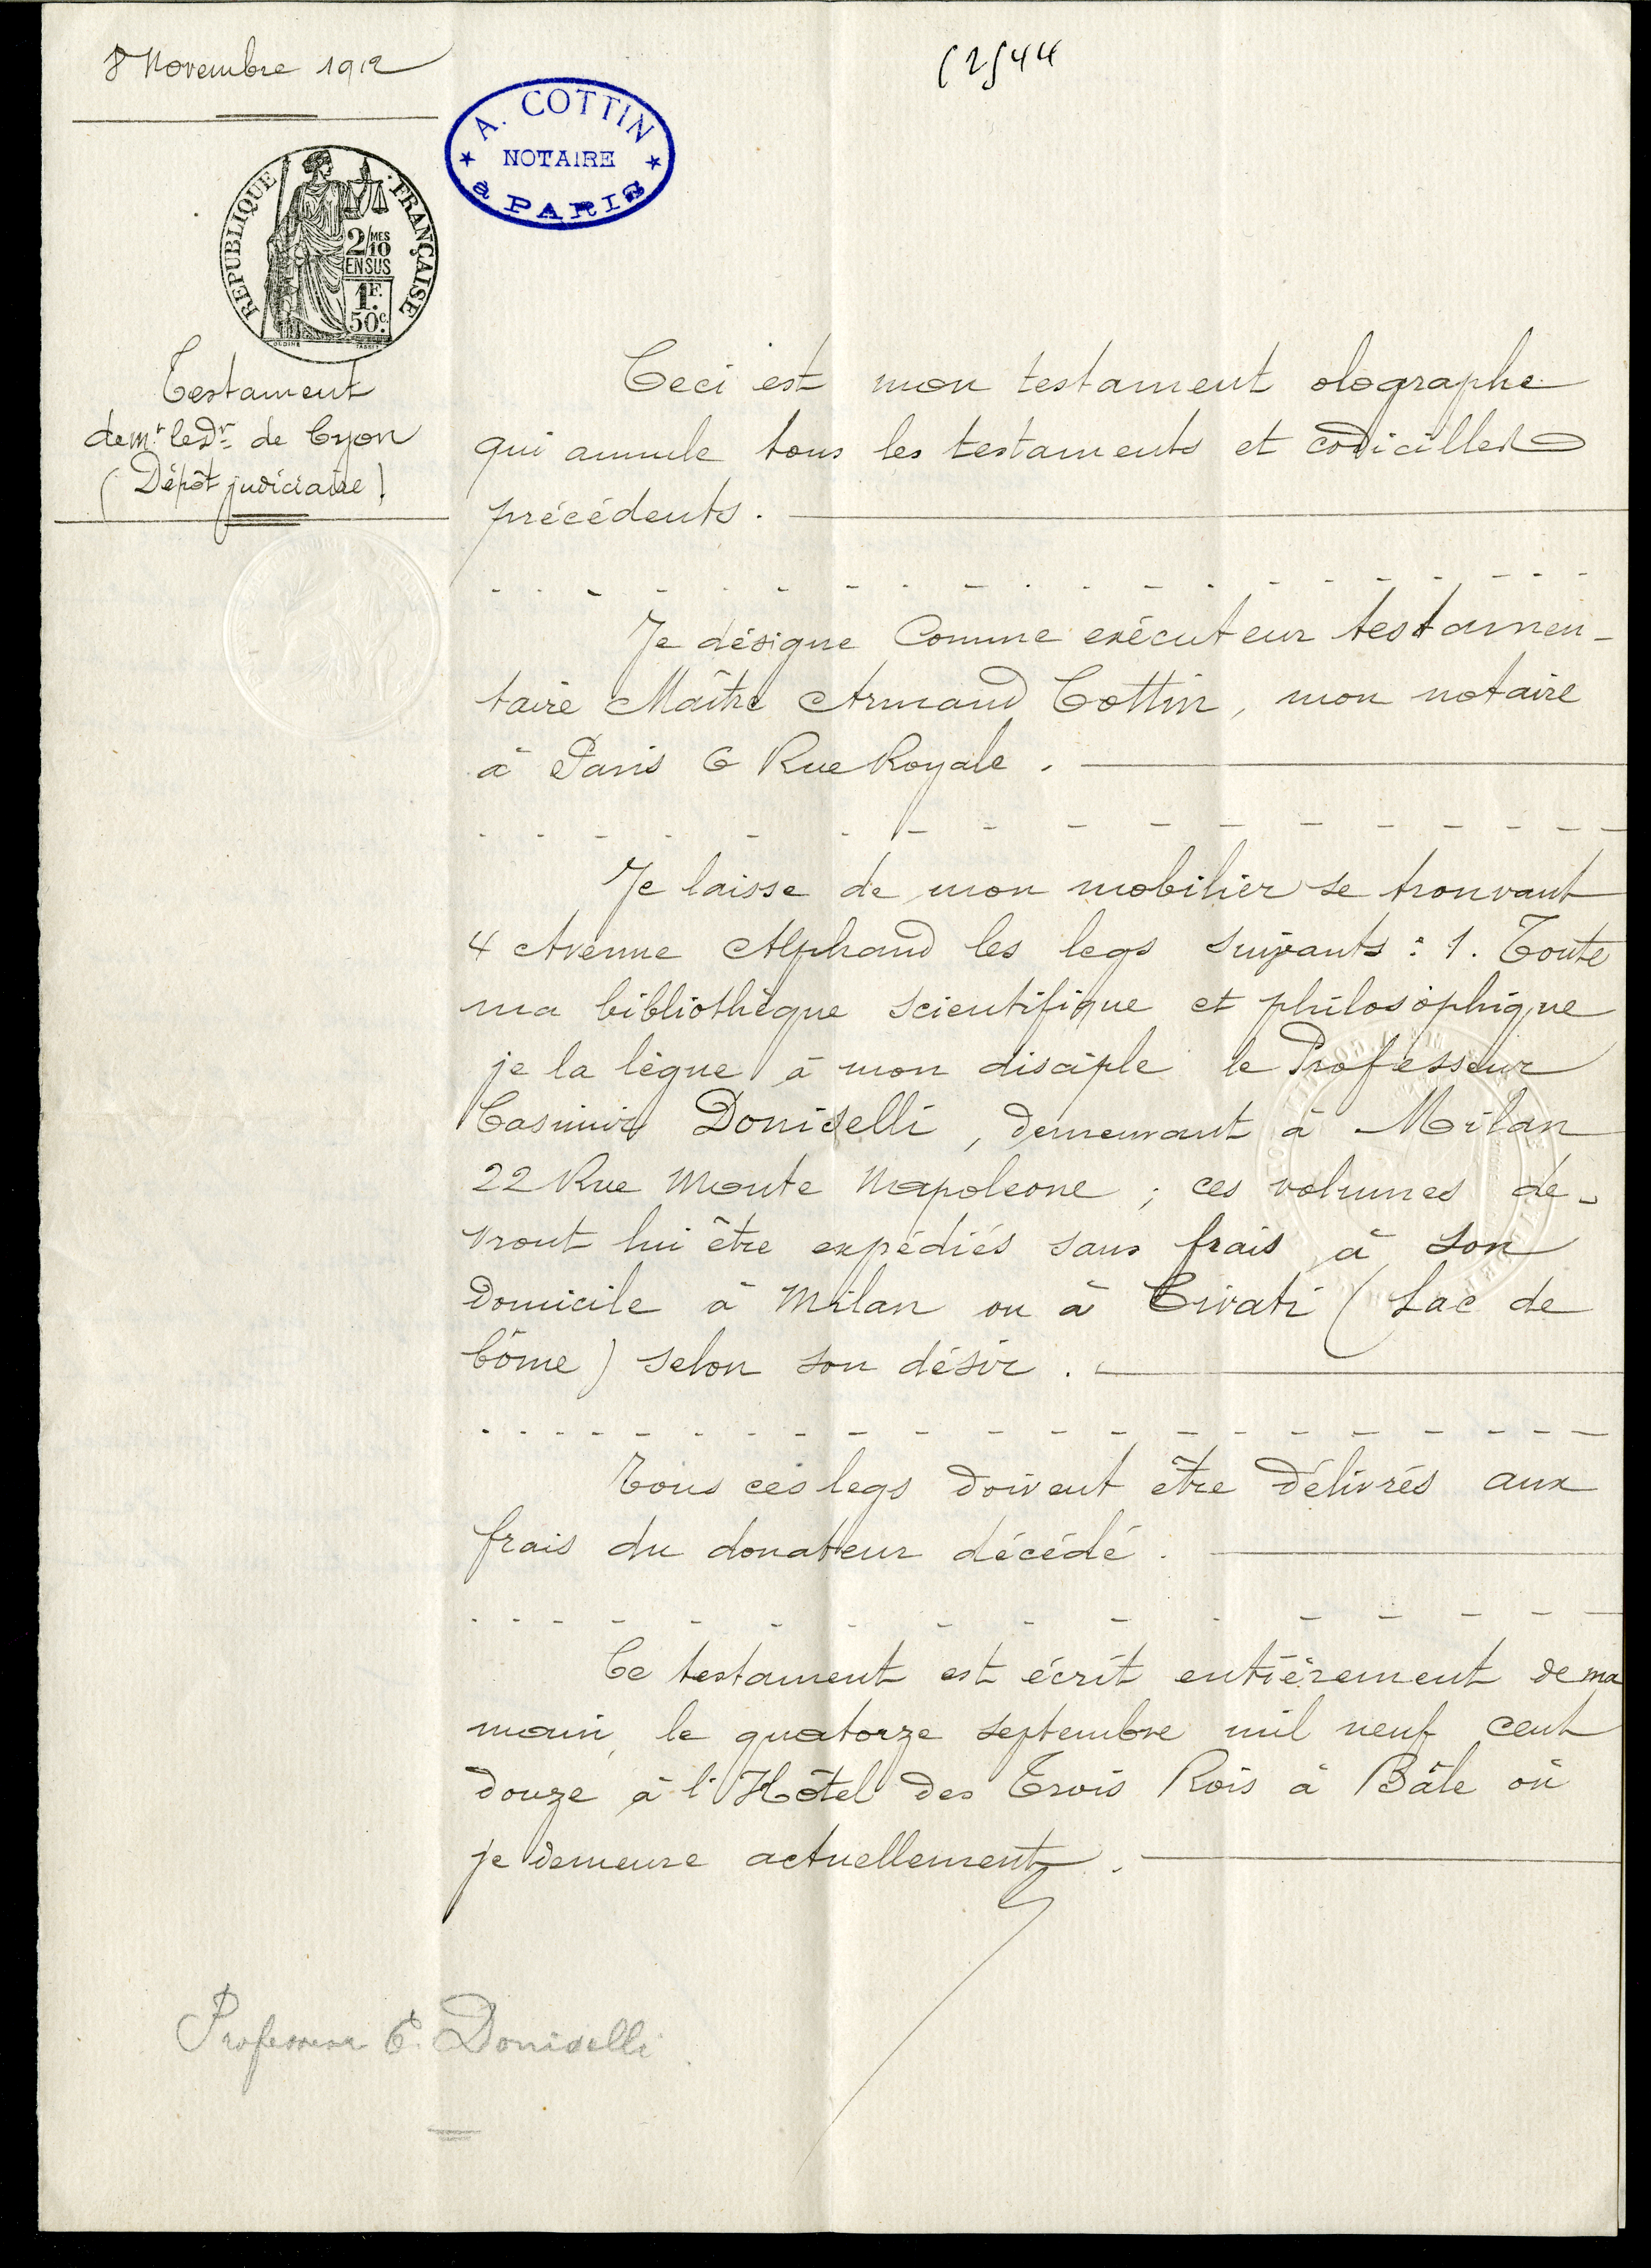 8 Novembre 1912
(2)44
A. COTTIN
NOTAIRE
à PARIS
REPUBLIQUE FRANÇAISE
2/MES
10
EN SUS
1F.
50c.
Testament
de Mr. le Dr. de Cyon
(Dépôt judiciaire)
Ceci est mon testament olographe
qui annule tous les testaments et codicilles
précédents.
Je désigne comme exécuteur testamen-
taire Maître Armand Cottin, mon notaire
à Paris 6 Rue Royale.
Je laisse de mon mobilier se trouvant
4 Avenue Alphand les legs suivants : 1. Toute
ma bibliothèque scientifique et philosophique
je la lègue à mon disciple le Professeur
Casimir Doniselli, demeurant à Milan
22 Rue Monte Napoleone ; ces volumes de-
vront lui être expédiés sans frais à son
Domicile à Milan ou à Civati (Lac de
Côme) selon son désir.
Tous ces legs doivent être délivrés aux
frais du donateur décédé.
Ce testament est écrit entièrement de ma
main, le quatorze septembre mil neuf cent
douze à l'Hôtel des Trois Rois à Bâle où
je demeure actuellement.
Professeur C. Doniselli